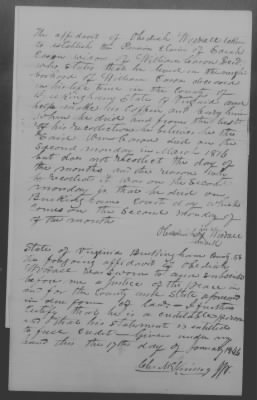 The affidavit of Obediah Worrall taken
to establish the Pension Claim of Sarah
Cason widow of William Cason Decd
who States that he lived in the neigh
borhood of William Cason
in his life time in the County of
Buckingham State of Virginia and
helped make his Coffin and bury him
when he died and from the best
of his recollections he believes the the
said Wm Cason died on the
Second monday in March 1878
but does not recollect the day of
the months and the reason why
he recollects it was on the Second
monday is that he died on
Buckingham Court day which
comes on the Second Monday of
the month
Obediah X Worrall
mark
State of Virginia Buckingham County To wit
the foregoing affidavit by Obediah
Worrall was Sworn to and Subscribed
before me a Justice of the Peace in
and for the County and State aforesaid
in due form of law & I further
certify that he is a creditable person
and that his statement is entitled
to full credit Given under my
hand this the 17th day of January
JP